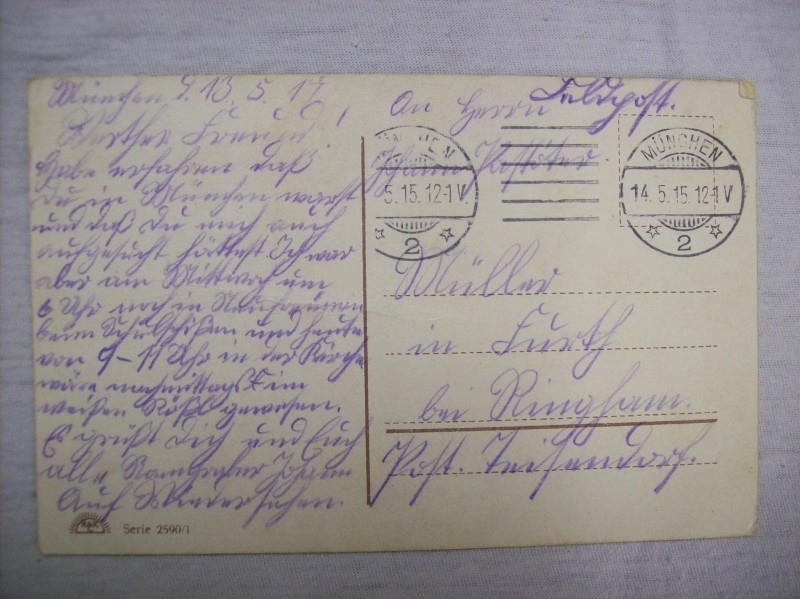 München, d. 13. 5. 17
Werther Freund!
Habe erfahren daß
Du in München warst
und daß Du mich auch
aufgesucht hättest Ich war
aber am Mittwoch um
6 Uhr noch in
beim Schulschißen und heute
von 9-11 Uhr in der Kirche
wäre nachmittags im
weißen Rößl gewesen.
Es grüßt Dich und Euch
alle Johann
Auf Wiedersehen.
Serie 2590/1
An Herrn Feldpost.
Johann
Müller
in Furth
bei Ringham.
Post. Teisendorf.
MÜNCHEN
5.15.12-1 V
2
MÜNCHEN
14.5.15.12-1 V
2